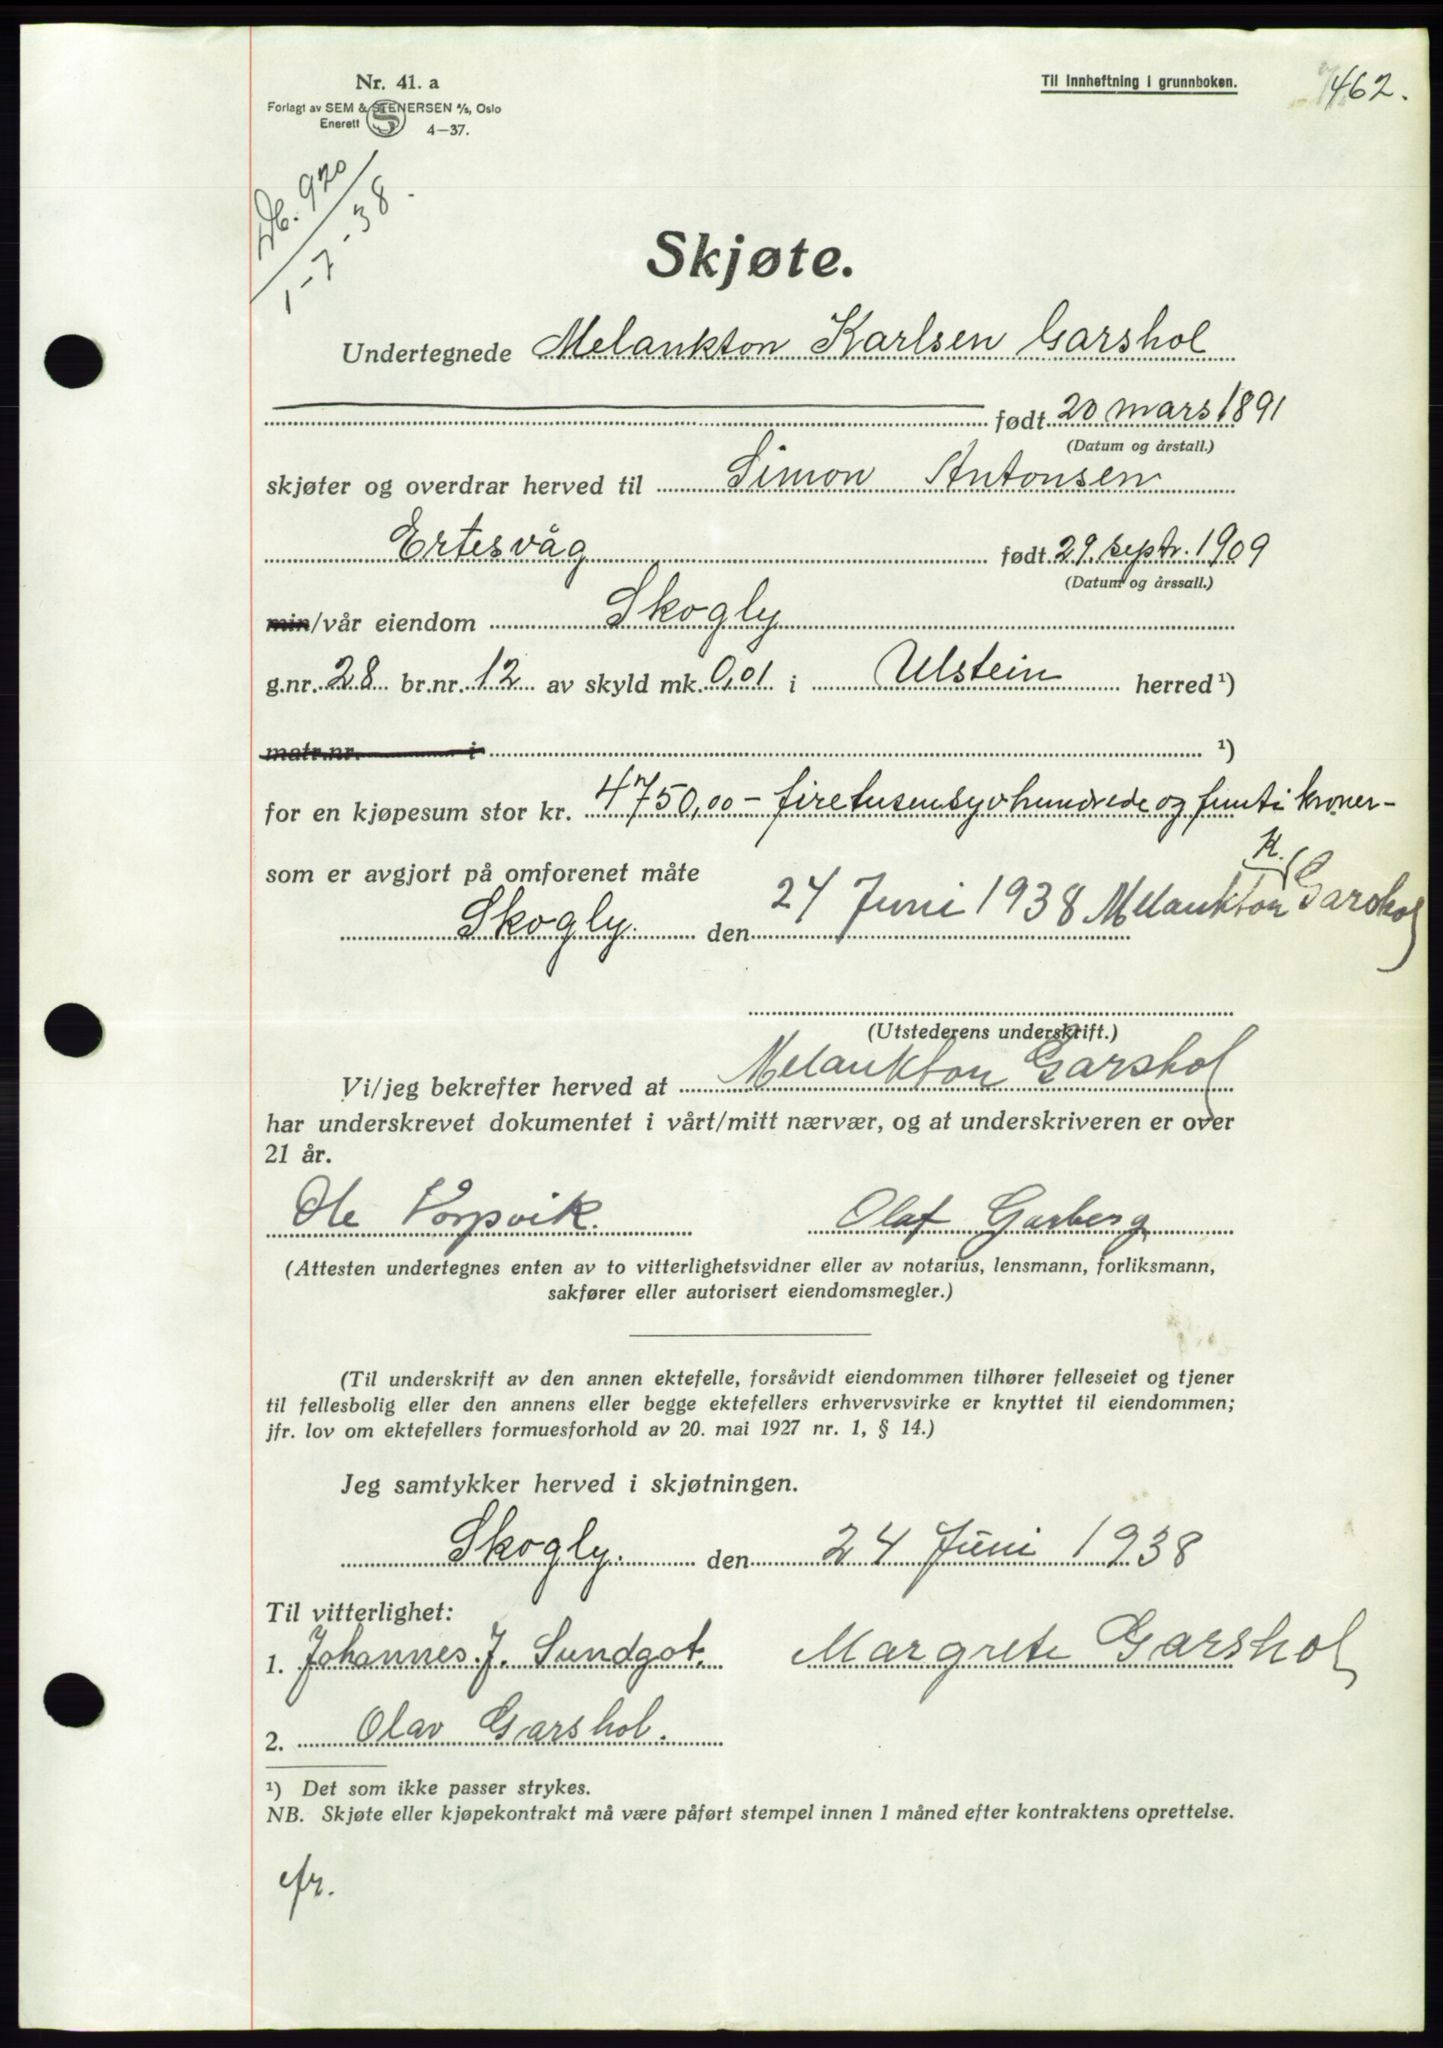 Nr. 41. a
Forlagt av SEM & STENERSEN A/S, Oslo
Enerett
4—37.
Til innheftning i grunnboken.
462.
Db. 920
1-7-38.
Skjøte.
Undertegnede Melankton Karlsen Garshol
født 20 mars 1891
(Datum og årstall.)
skjøter og overdrar herved til Simon Antonsen
Ertesvåg født 29. septr. 1909
(Datum og årssall.)
min/vår eiendom Skogly
g.nr. 28 br.nr. 12 av skyld mk. 0,01 i Ulstein herred ¹)
matr.nr. i ¹)
for en kjøpesum stor kr. 4750,00 - firetusensyvhundrede og femti kroner-
som er avgjort på omforenet måte
Skogly. den 24 Juni 1938 Melankton K. Garshol
(Utstederens underskrift.)
Vi/jeg bekrefter herved at Melankton Garshol
har underskrevet dokumentet i vårt/mitt nærvær, og at underskriveren er over
21 år.
Ole Vorpvik. Olaf Garberg
(Attesten undertegnes enten av to vitterlighetsvidner eller av notarius, lensmann, forliksmann,
sakfører eller autorisert eiendomsmegler.)
(Til underskrift av den annen ektefelle, forsåvidt eiendommen tilhører felleseiet og tjener
til fellesbolig eller den annens eller begge ektefellers erhvervsvirke er knyttet til eiendommen;
jfr. lov om ektefellers formuesforhold av 20. mai 1927 nr. 1, § 14.)
Jeg samtykker herved i skjøtningen.
Skogly. den 24 Juni 1938
Til vitterlighet:
1. Johannes J. Sundgot. Margrete Garshol
2. Olav Garshol.
¹) Det som ikke passer strykes.
NB. Skjøte eller kjøpekontrakt må være påført stempel innen 1 måned efter kontraktens oprettelse.